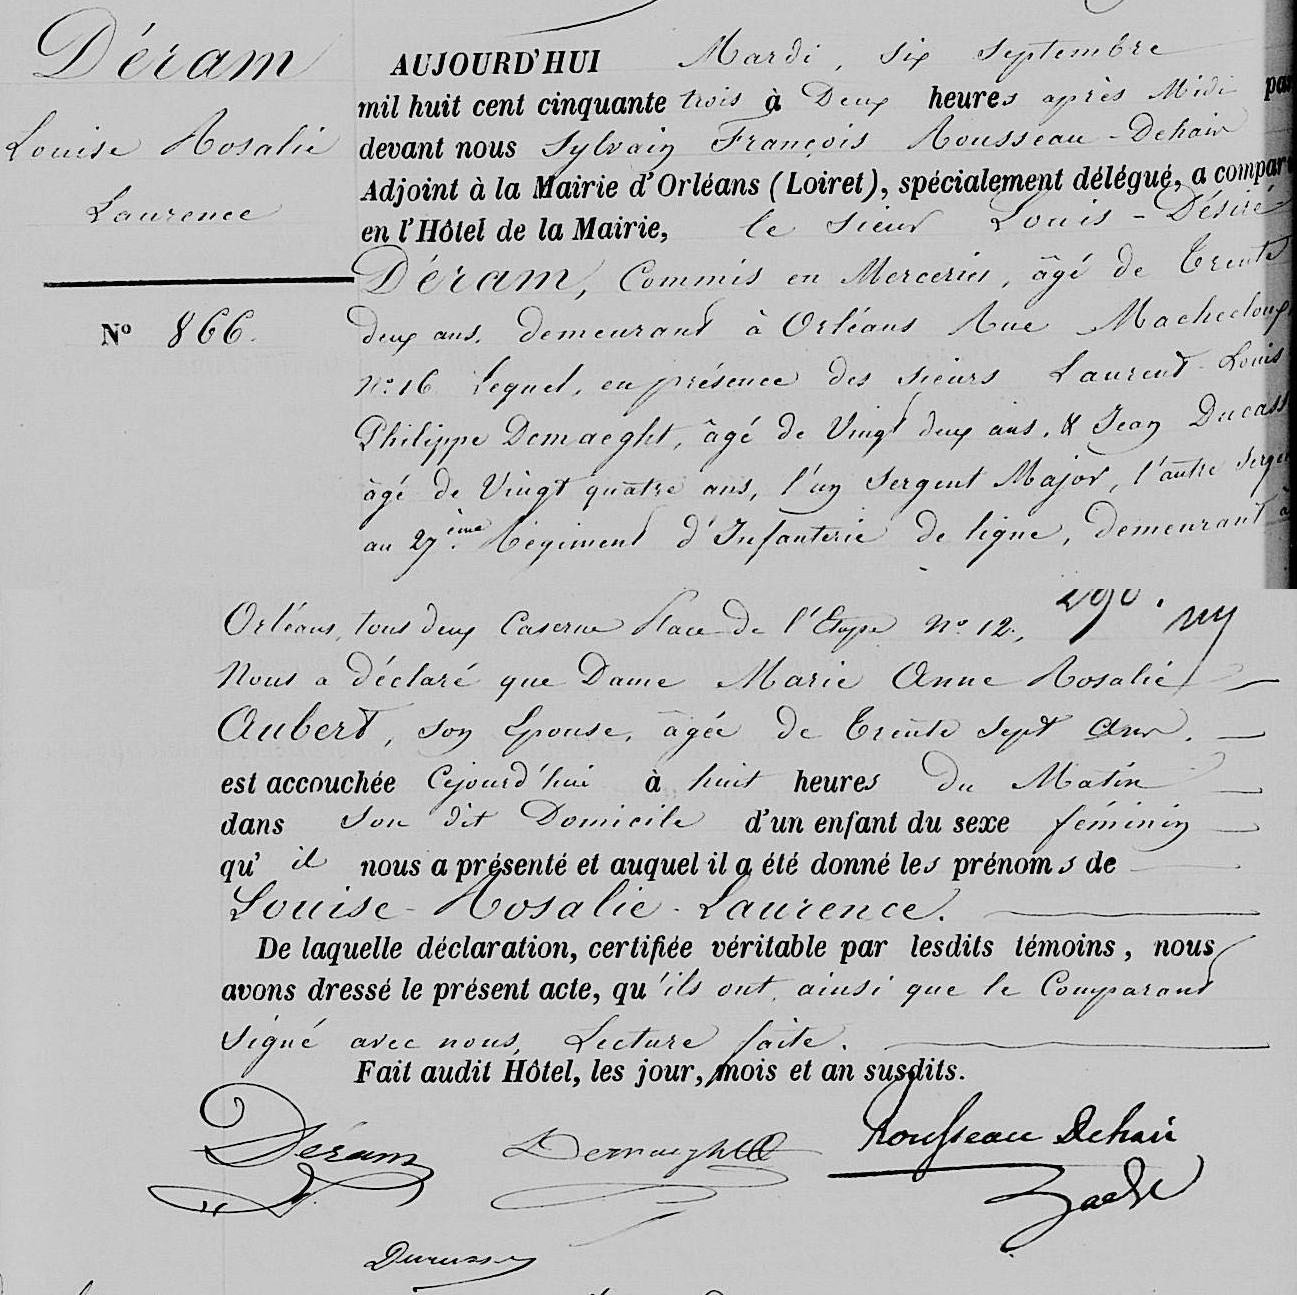 Déram
Louise Rosalie
Laurence
N° 866.
AUJOURD'HUI Mardi, six septembre
mil huit cent cinquante trois à Deux heures après Midi par
devant nous Sylvain François Rousseau-Dehais
Adjoint à la Mairie d'Orléans (Loiret), spécialement délégué, a comparu
en l'Hôtel de la Mairie, le sieur Louis-Désiré
Déram, Commis en Merceries, âgé de trente
deux ans, demeurant à Orléans Rue Machecloux
N° 16. Lequel, en présence des sieurs Laurent Louis
Philippe Demaeght, âgé de Vingt deux ans, & Jean Ducass
âgé de Vingt quatre ans, l'un Sergent Major, l'autre Serge
au 27ème Régiment d'Infanterie de ligne, demeurant à
290.
Orléans, tous deux Caserne Place de l'Etape N° 12.,
Nous a déclaré que Dame Marie Anne Rosalie
Aubert, son Epouse, âgée de Trente sept ans.
est accouchée Cejourd'hui à huit heures du Matin
dans son dit Domicile d'un enfant du sexe féminin
qu'il nous a présenté et auquel il a été donné les prénoms de
Louise-Rosalie-Laurence.
De laquelle déclaration, certifiée véritable par lesdits témoins, nous
avons dressé le présent acte, qu'ils ont, ainsi que le Comparant
Signé avec nous, Lecture faite.
Fait audit Hôtel, les jour, mois et an susdits.
Déram Demaeght Rousseau Dehais